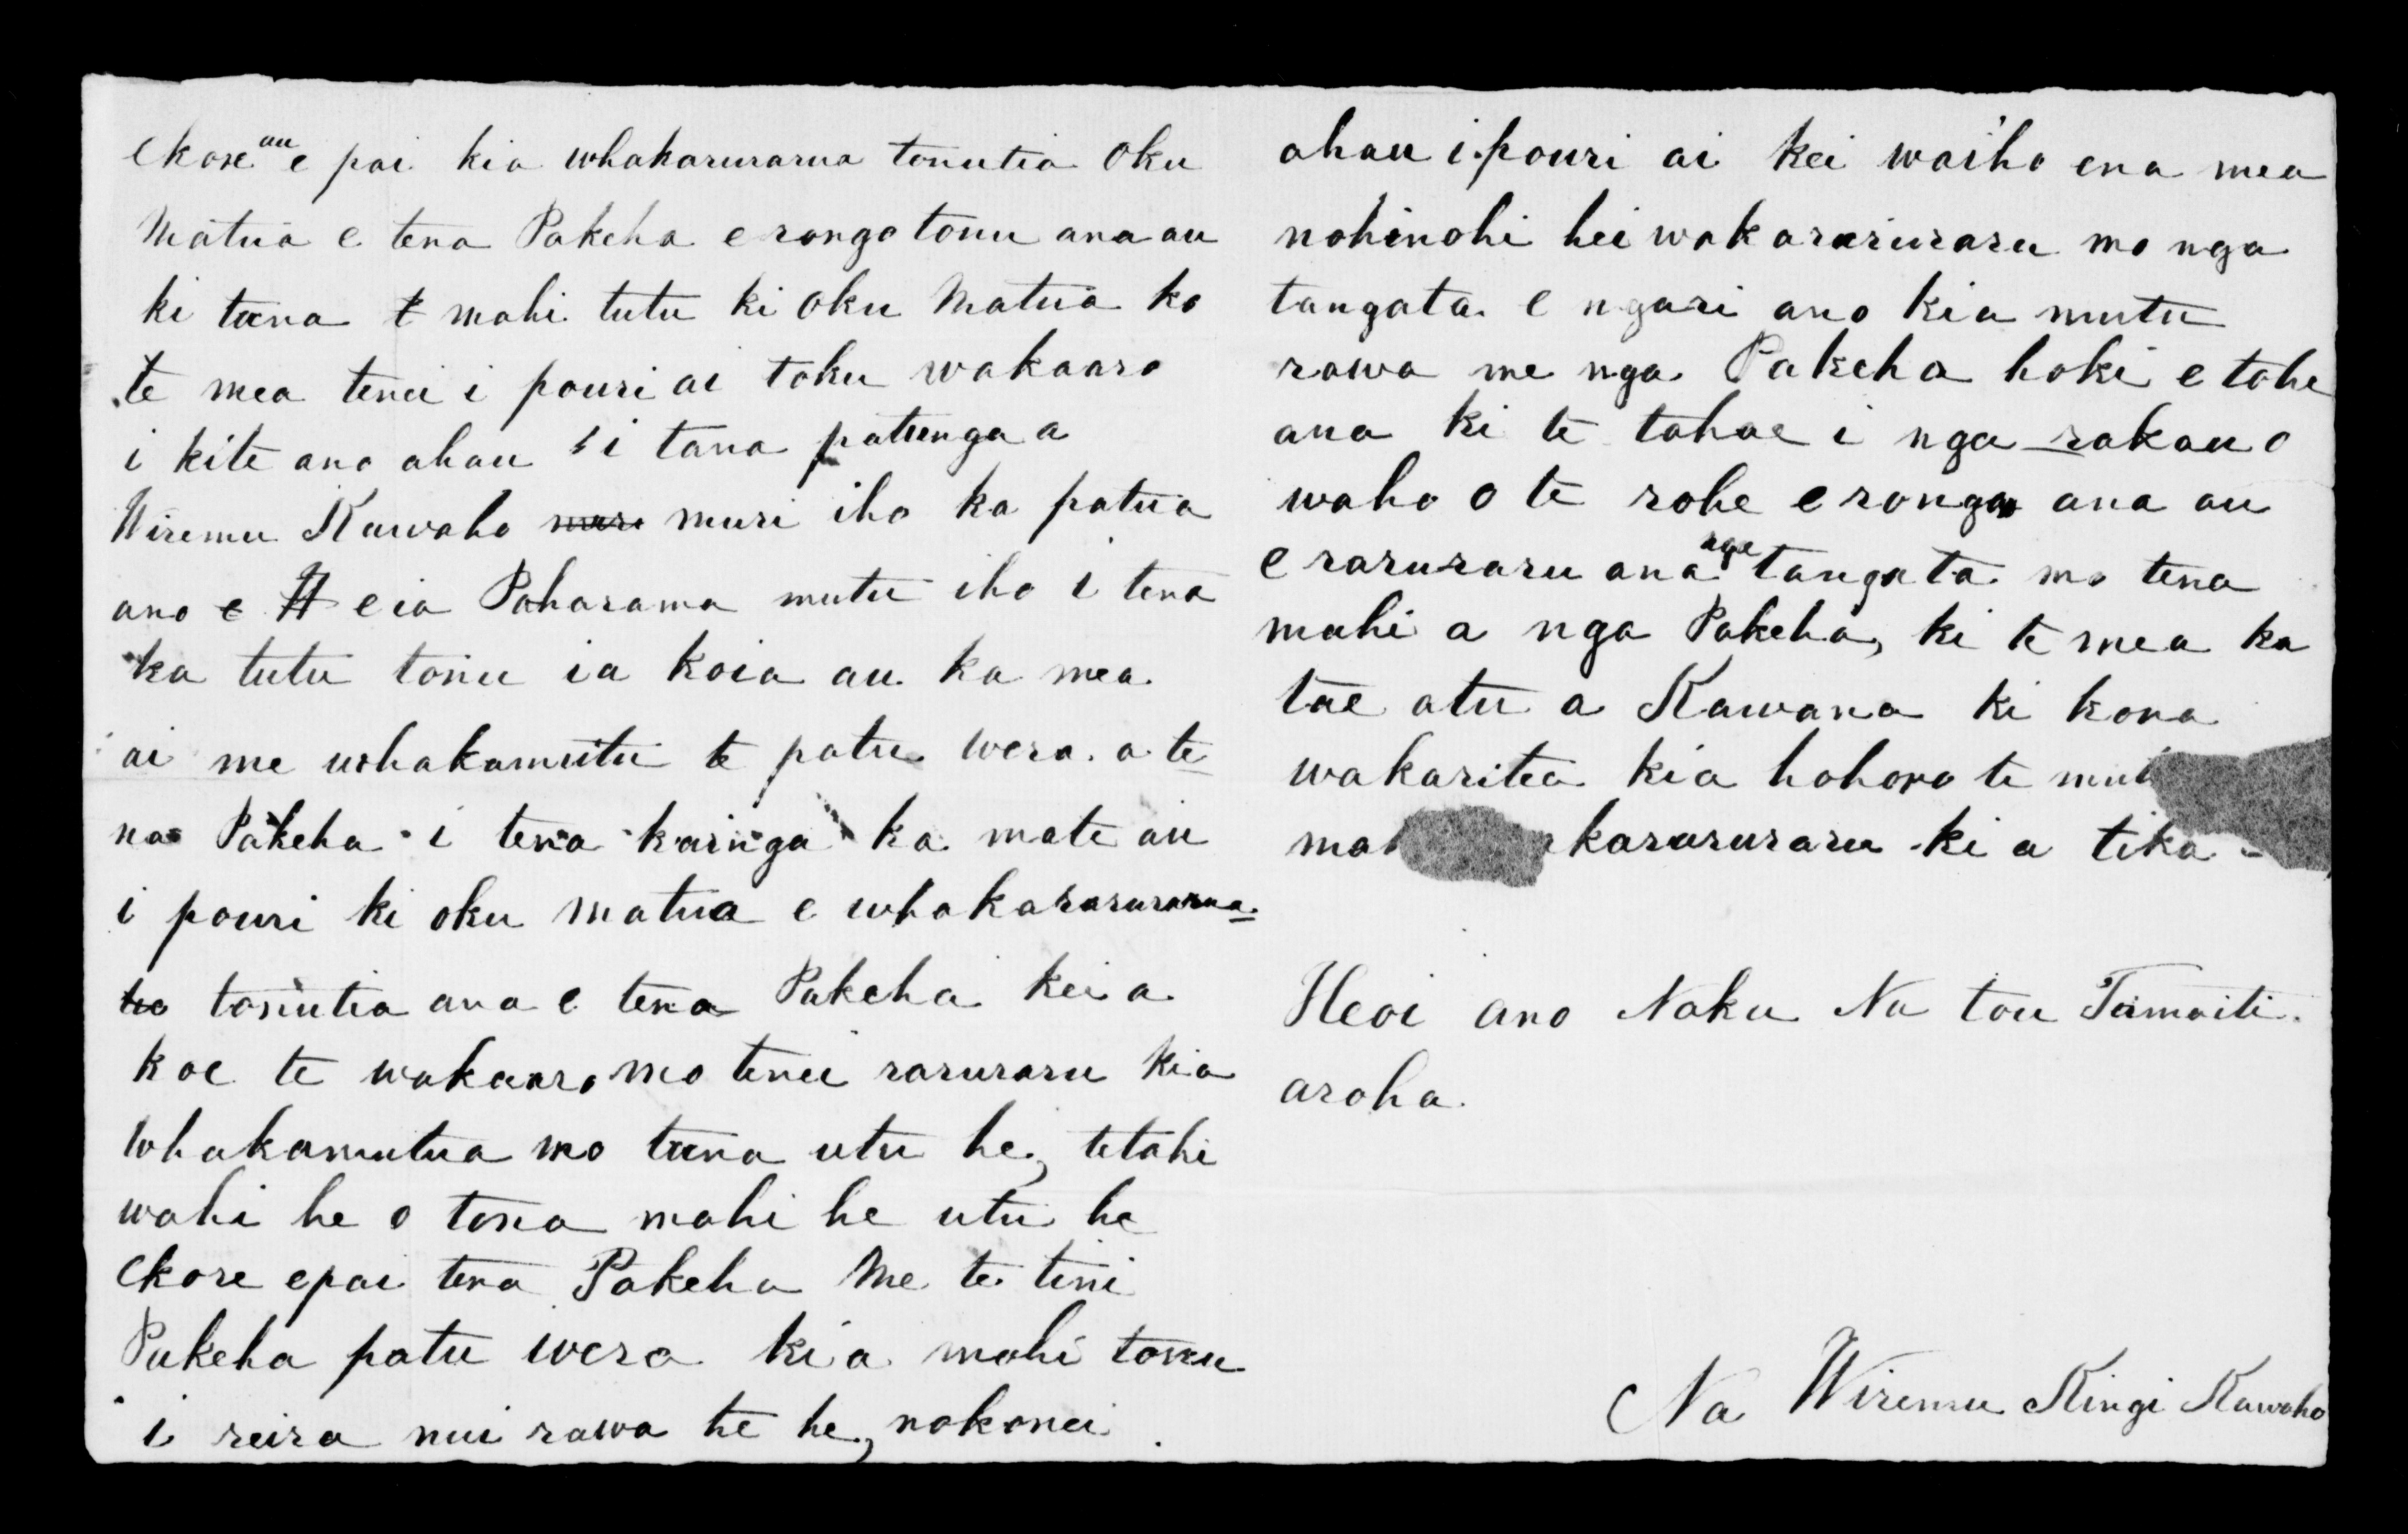 ekore au e pai kia whakarurarua tonutia oku
Matua e tena Pakeha e rongo tonu ana au
ki tana t mahi tutu ki oku Matua ko
te mea tenei i pouri ai toku wakaaro
i kite ano ahau i tana patunga a
Wiremu Kawaho muri muri iho ka patua
ano e H e ia Paharama mutu iho i tena
ka tutu tonu ia koia au ka mea
ai me whakamutu te patu wera a te
na Pakeha i tena kainga ka mate au
i pouri ki oku matua e whakararurarua
tia tonutia ana e tena Pakeha kei a
koe te wakaaro mo tenei raruraru kia
whakamutua mo tana utu he, tetahi
wahi he o tona mahi he utu he
ekore e pai tena Pakeha me te tini
Pakeha patu wera kia mahi tonu
i reira nui rawa te he, nokonei
ahau i pouri ai kei waiho ena mea
nohinohi hei wakararuraru mo nga
tangata e ngari ano kia mutu
rawa me nga Pakeha hoki e tohe
ana ki te tahae i nga rakau o
waho o te rohe e rongo ana au
e raruraru ana nga tangata mo tena
mahi a nga Pakeha, ki te mea ka
tae atu a Kawana ki kona
wakaritea kia hohoro te
kararuraru kia tika
Heoi ano Naku Na tou Tamaiti
aroha.
Na Wiremu Kingi Kawaho